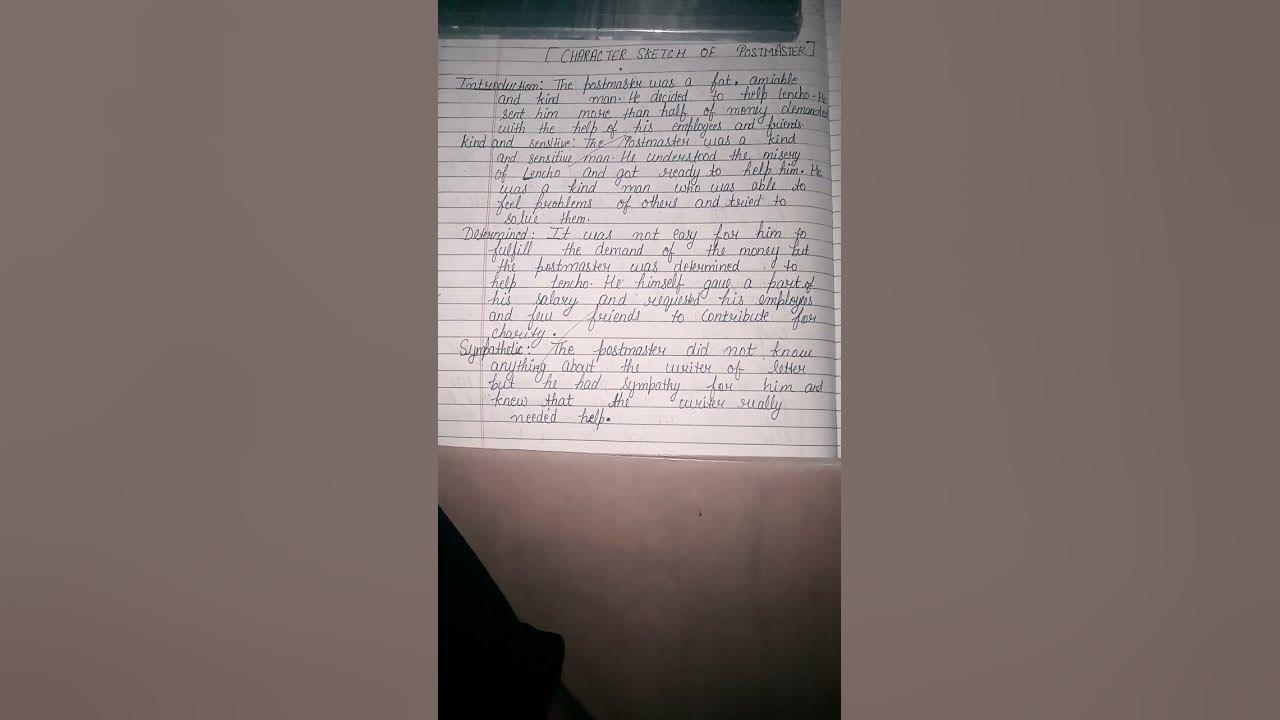 [ CHARACTER SKETCH OF POSTMASTER ]
Introduction: The postmaster was a fat, amiable
and kind man. He decided to help Lencho. He
sent him more than half of money demanded
with the help of his employees and friends.
Kind and sensitive: The Postmaster was a kind
and sensitive man. He understood the misery
of Lencho and got ready to help him. He
was a kind man who was able to
feel problems of others and tried to
solve them.
Determined: It was not easy for him to
fulfill the demand of the money but
the postmaster was determined to
help Lencho. He himself gave a part of
his salary and requested his employees
and few friends to contribute for
charity.
Sympathetic: The postmaster did not know
anything about the writer of letter
but he had sympathy for him and
knew that the writer really
needed help.